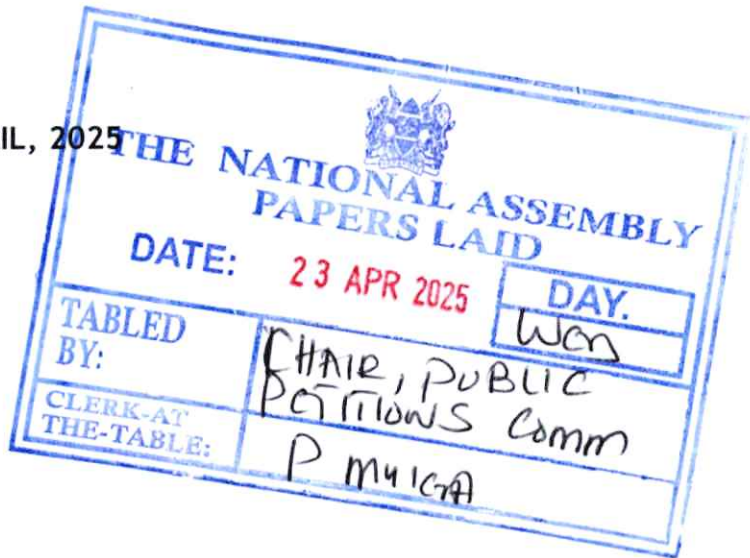 IL, 2025
THE NATIONAL ASSEMBLY
PAPERS LAID
DATE: 23 APR 2025
DAY.
Wed
TABLED
BY:
CHAIR, PUBLIC
PETITIONS Comm
CLERK-AT
THE-TABLE:
P